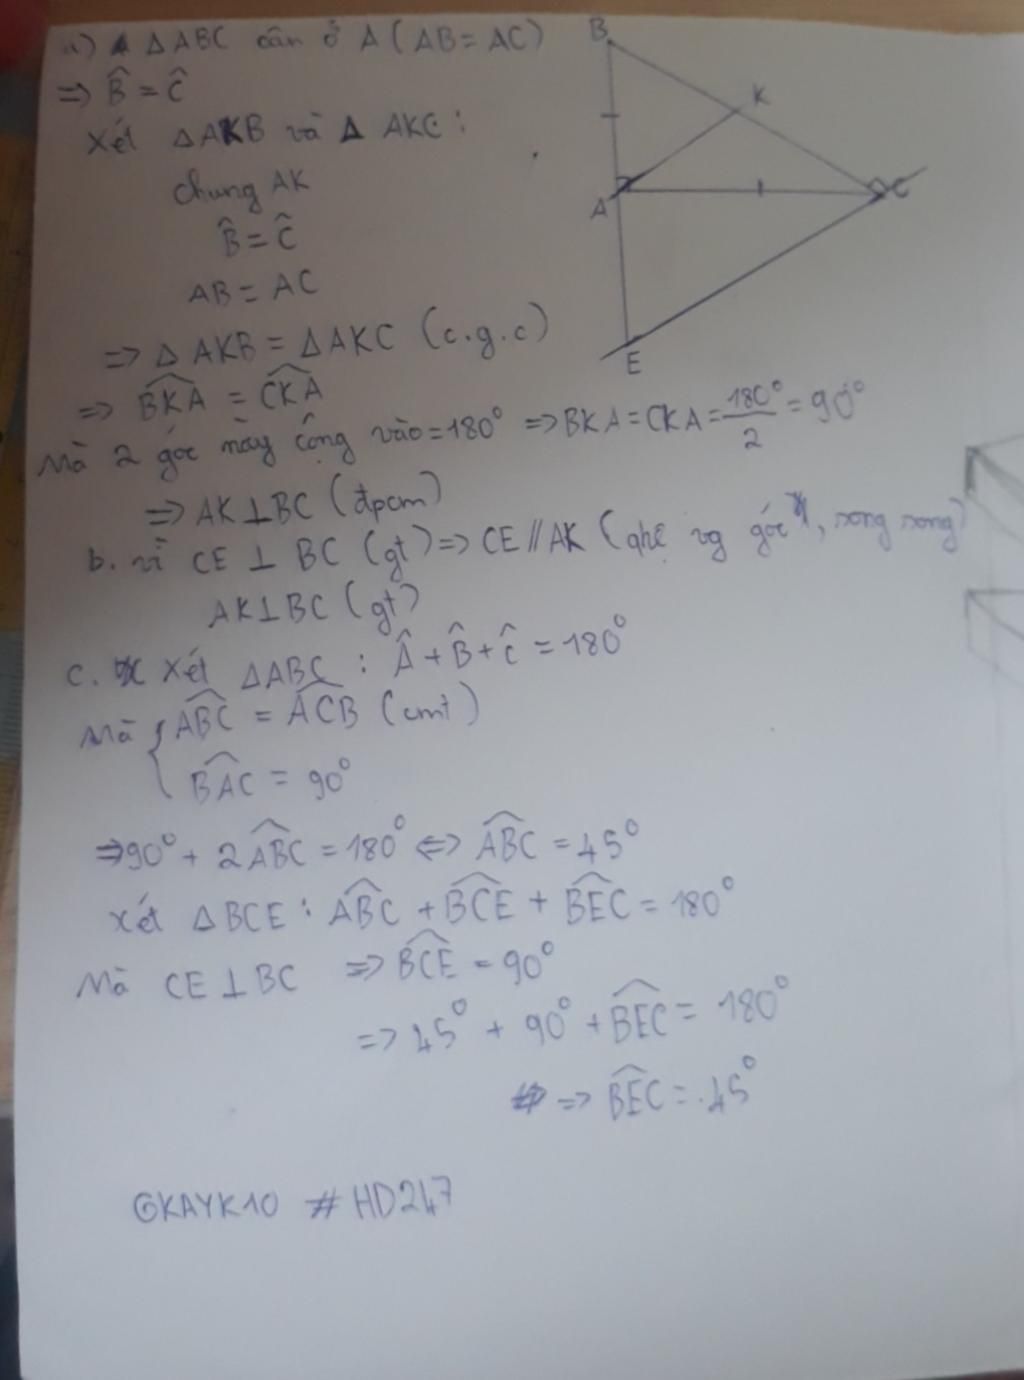 a) Δ ABC cân ở A ( AB = AC )
=> B̂ = Ĉ
Xét Δ AKB và Δ AKC :
chung AK
B̂ = Ĉ
AB = AC
=> Δ AKB = Δ AKC (c.g.c)
=> BKA = CKA
Mà 2 góc này cộng vào = 180° => BKA = CKA = 180°/2 = 90°
=> AK ⊥ BC (đpcm)
b. vì CE ⊥ BC (gt) => CE // AK (qhệ vg góc, song song)
AK ⊥ BC (gt)
c. Xét Δ ABC : Â + B̂ + Ĉ = 180°
Mà { ABC = ACB (cmt)
BAC = 90°
=> 90° + 2ABC = 180° <=> ABC = 45°
Xét Δ BCE : ABC + BCE + BEC = 180°
Mà CE ⊥ BC => BCE = 90°
=> 45° + 90° + BEC = 180°
=> BEC = 45°
@KAYK10 # HD247
B
K
A
C
E